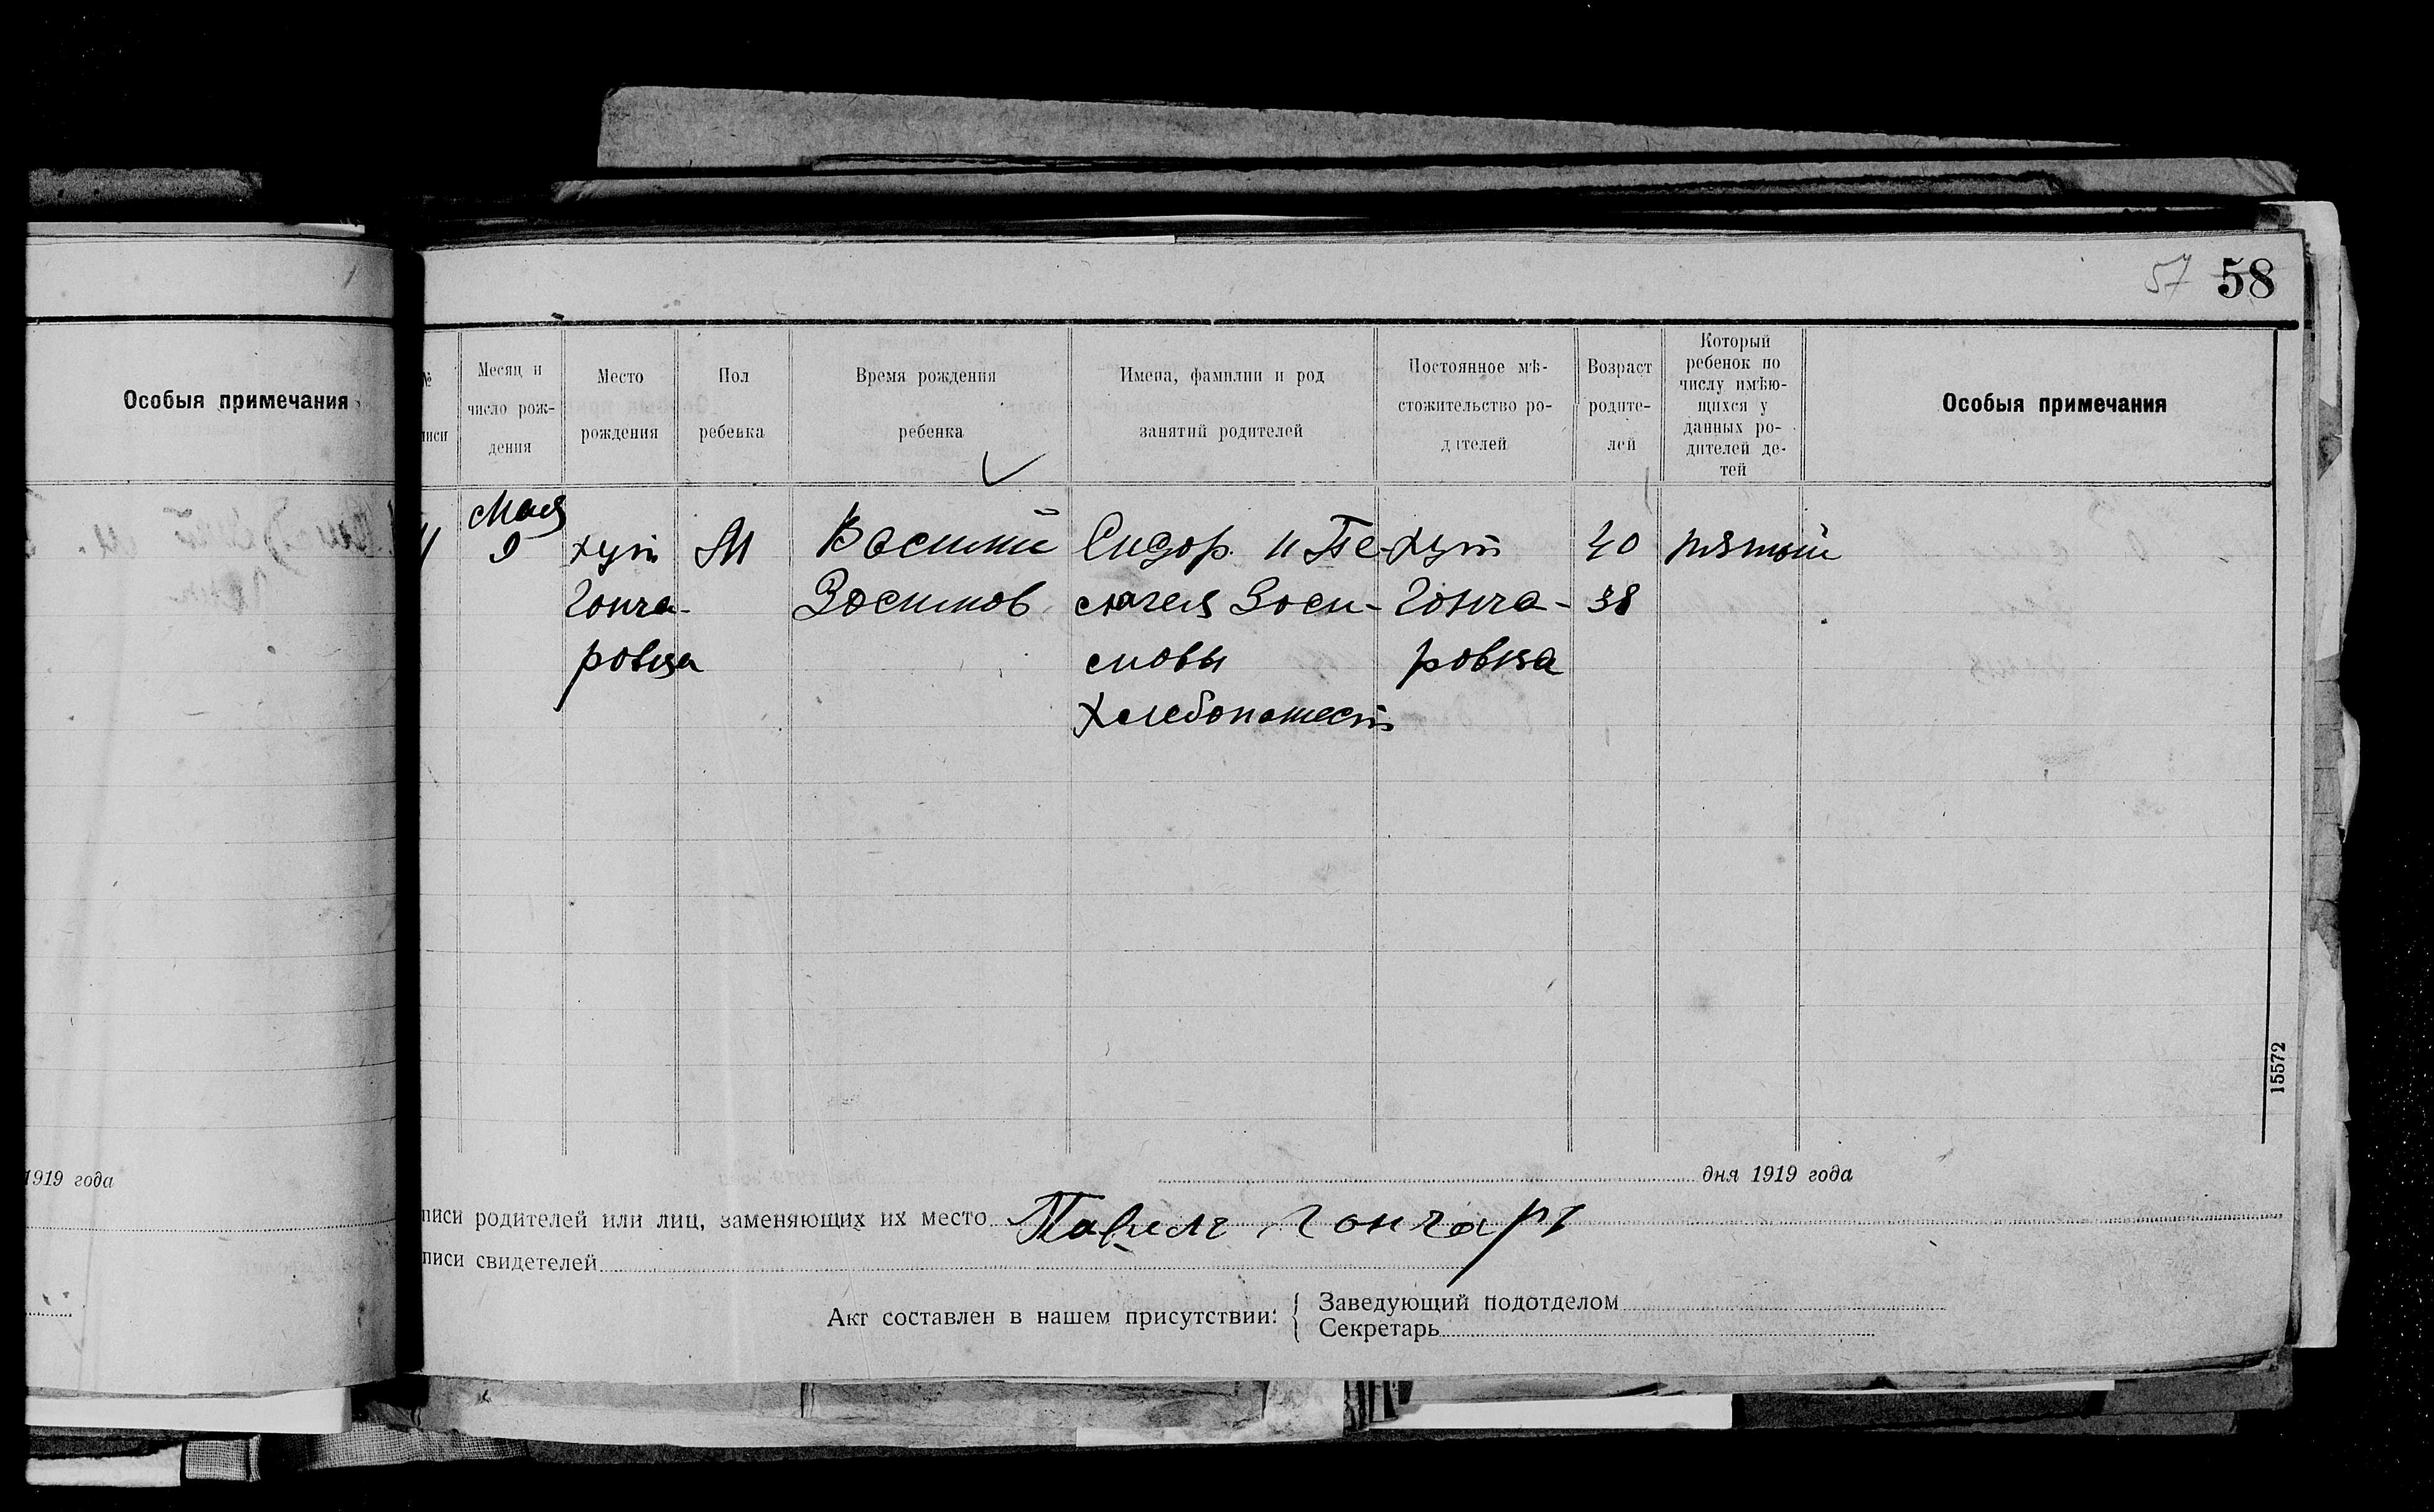 57 58
Особыя примечания
№
писи
Месяц и
число рож-
дения
Место
рождения
Пол
ребенка
Время рождения
ребенка
Имена, фамилии и род
занятий родителей
Постоянное мѣ-
стожительство ро-
дителей
Возраст
родите-
лей
Который
ребенок по
числу имѣю-
щихся у
данных ро-
дителей де-
тей
Особыя примечания
Мая
9
хут
Гонча-
ровка
М
Василий
Зосимов
Сидор и Пе-
лагея Зоси-
мовы
Хлебопашест
хут
Гонча-
ровка
40
38
пятый
15572
1919 года
дня 1919 года
писи родителей или лиц, заменяющих их место Павел Гончаръ
писи свидетелей
Акт составлен в нашем присутствии:
Заведующий подотделом
Секретарь